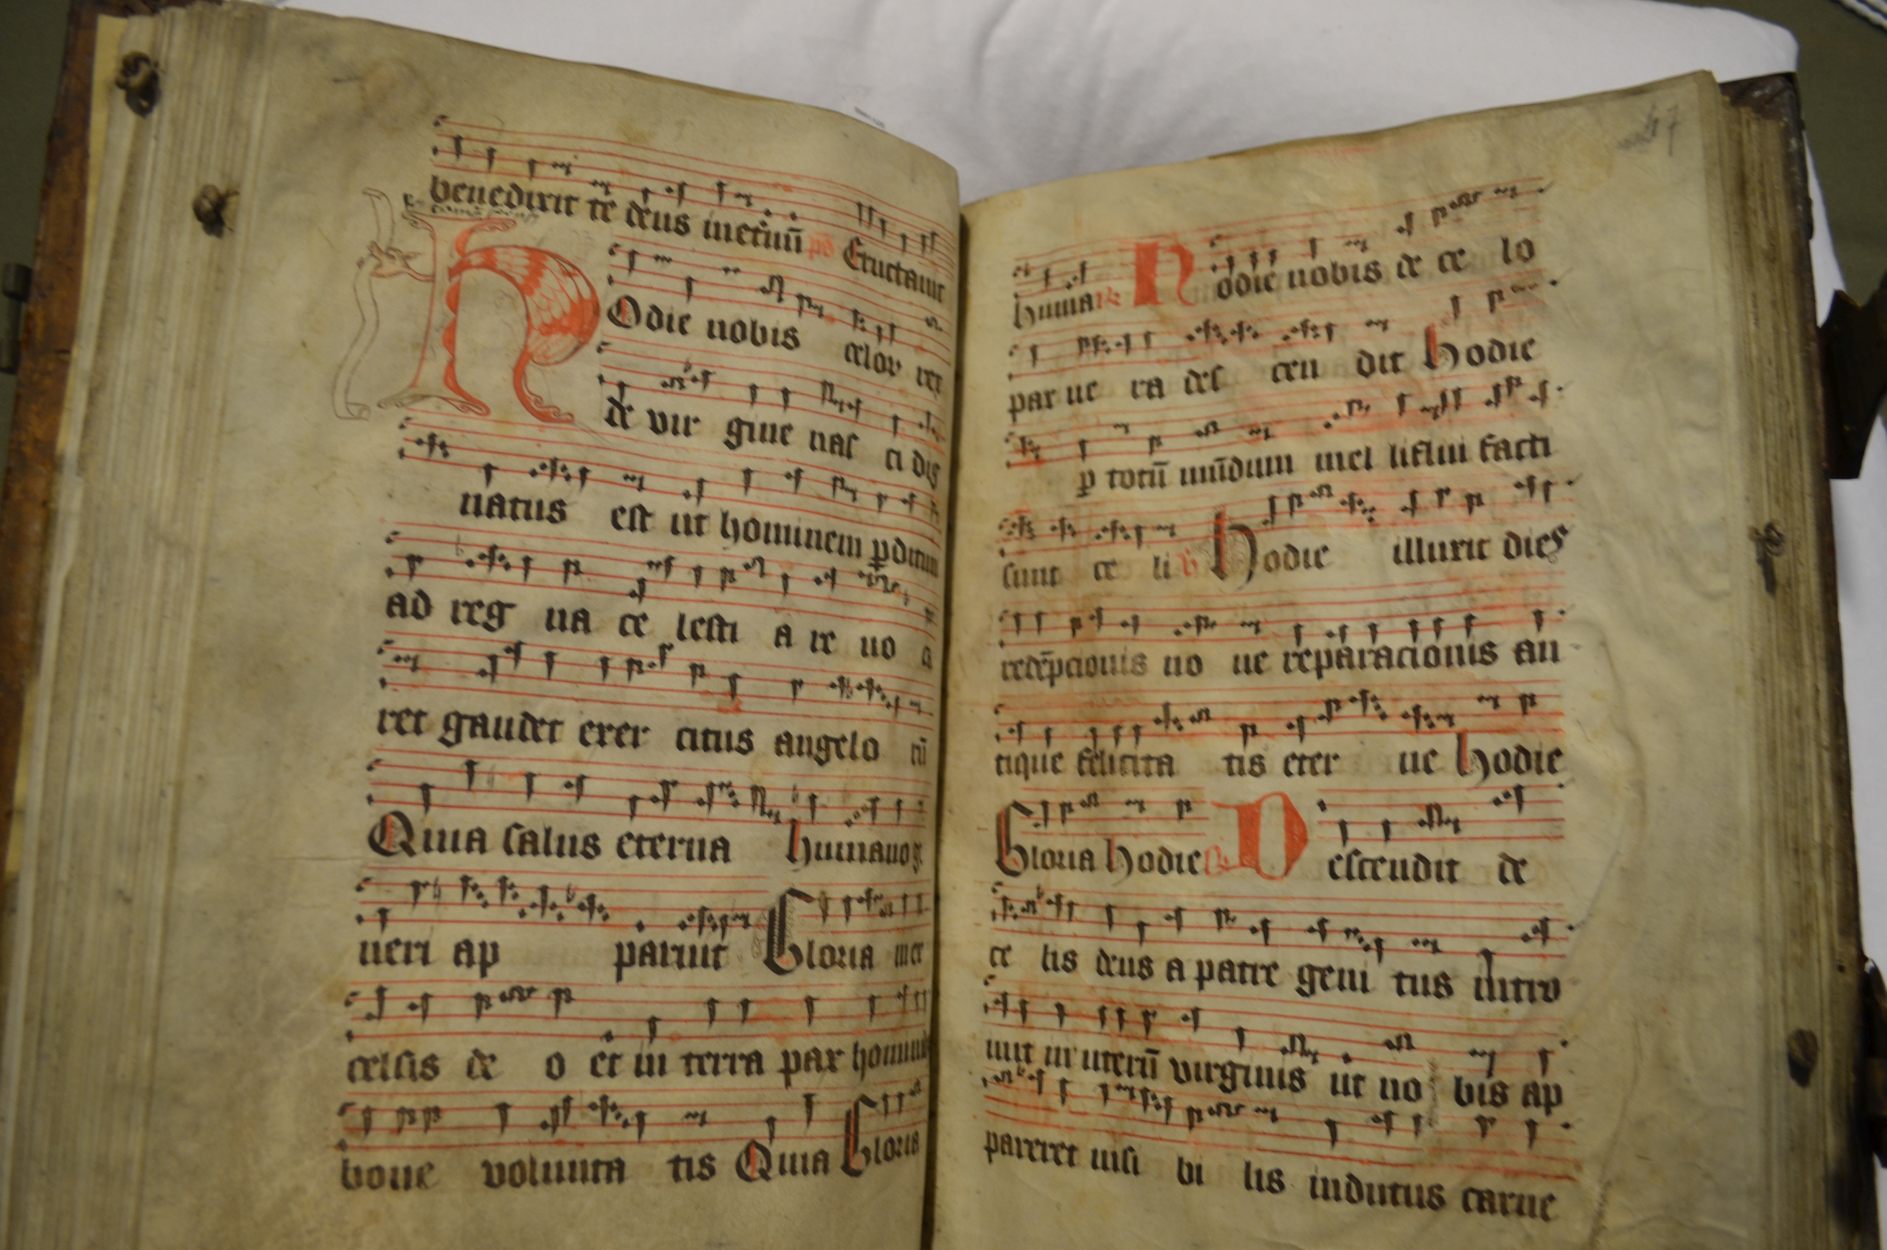 benedixit te deus ineternū ps Eructauit
HOdie nobis celoꝝ rex
de vir gine nas ci dig
natus est ut hominem ꝑditum
ad reg na ce lesti a re uo a
ret gaudet exer citus angelo rū
Quia salus eterna humano ge
neri ap paruit Gloria in ex
celsis de o et in terra pax homini
bone volunta tis Quia Gloria
huma R Hodie nobis de ce lo
pax ue ra des cen dit Hodie
ꝑ totū mūdum mel liflui facti
sunt ce li v Hodie illuxit dies
redēpcionis no ue reparacionis an
tique felicita tis eter ne Hodie
Gloria hodie R Descendit de
ce lis deus a patre geni tus intro
iuit in uterū virginis ut no bis ap
pareret uisi bi lis indutus carne